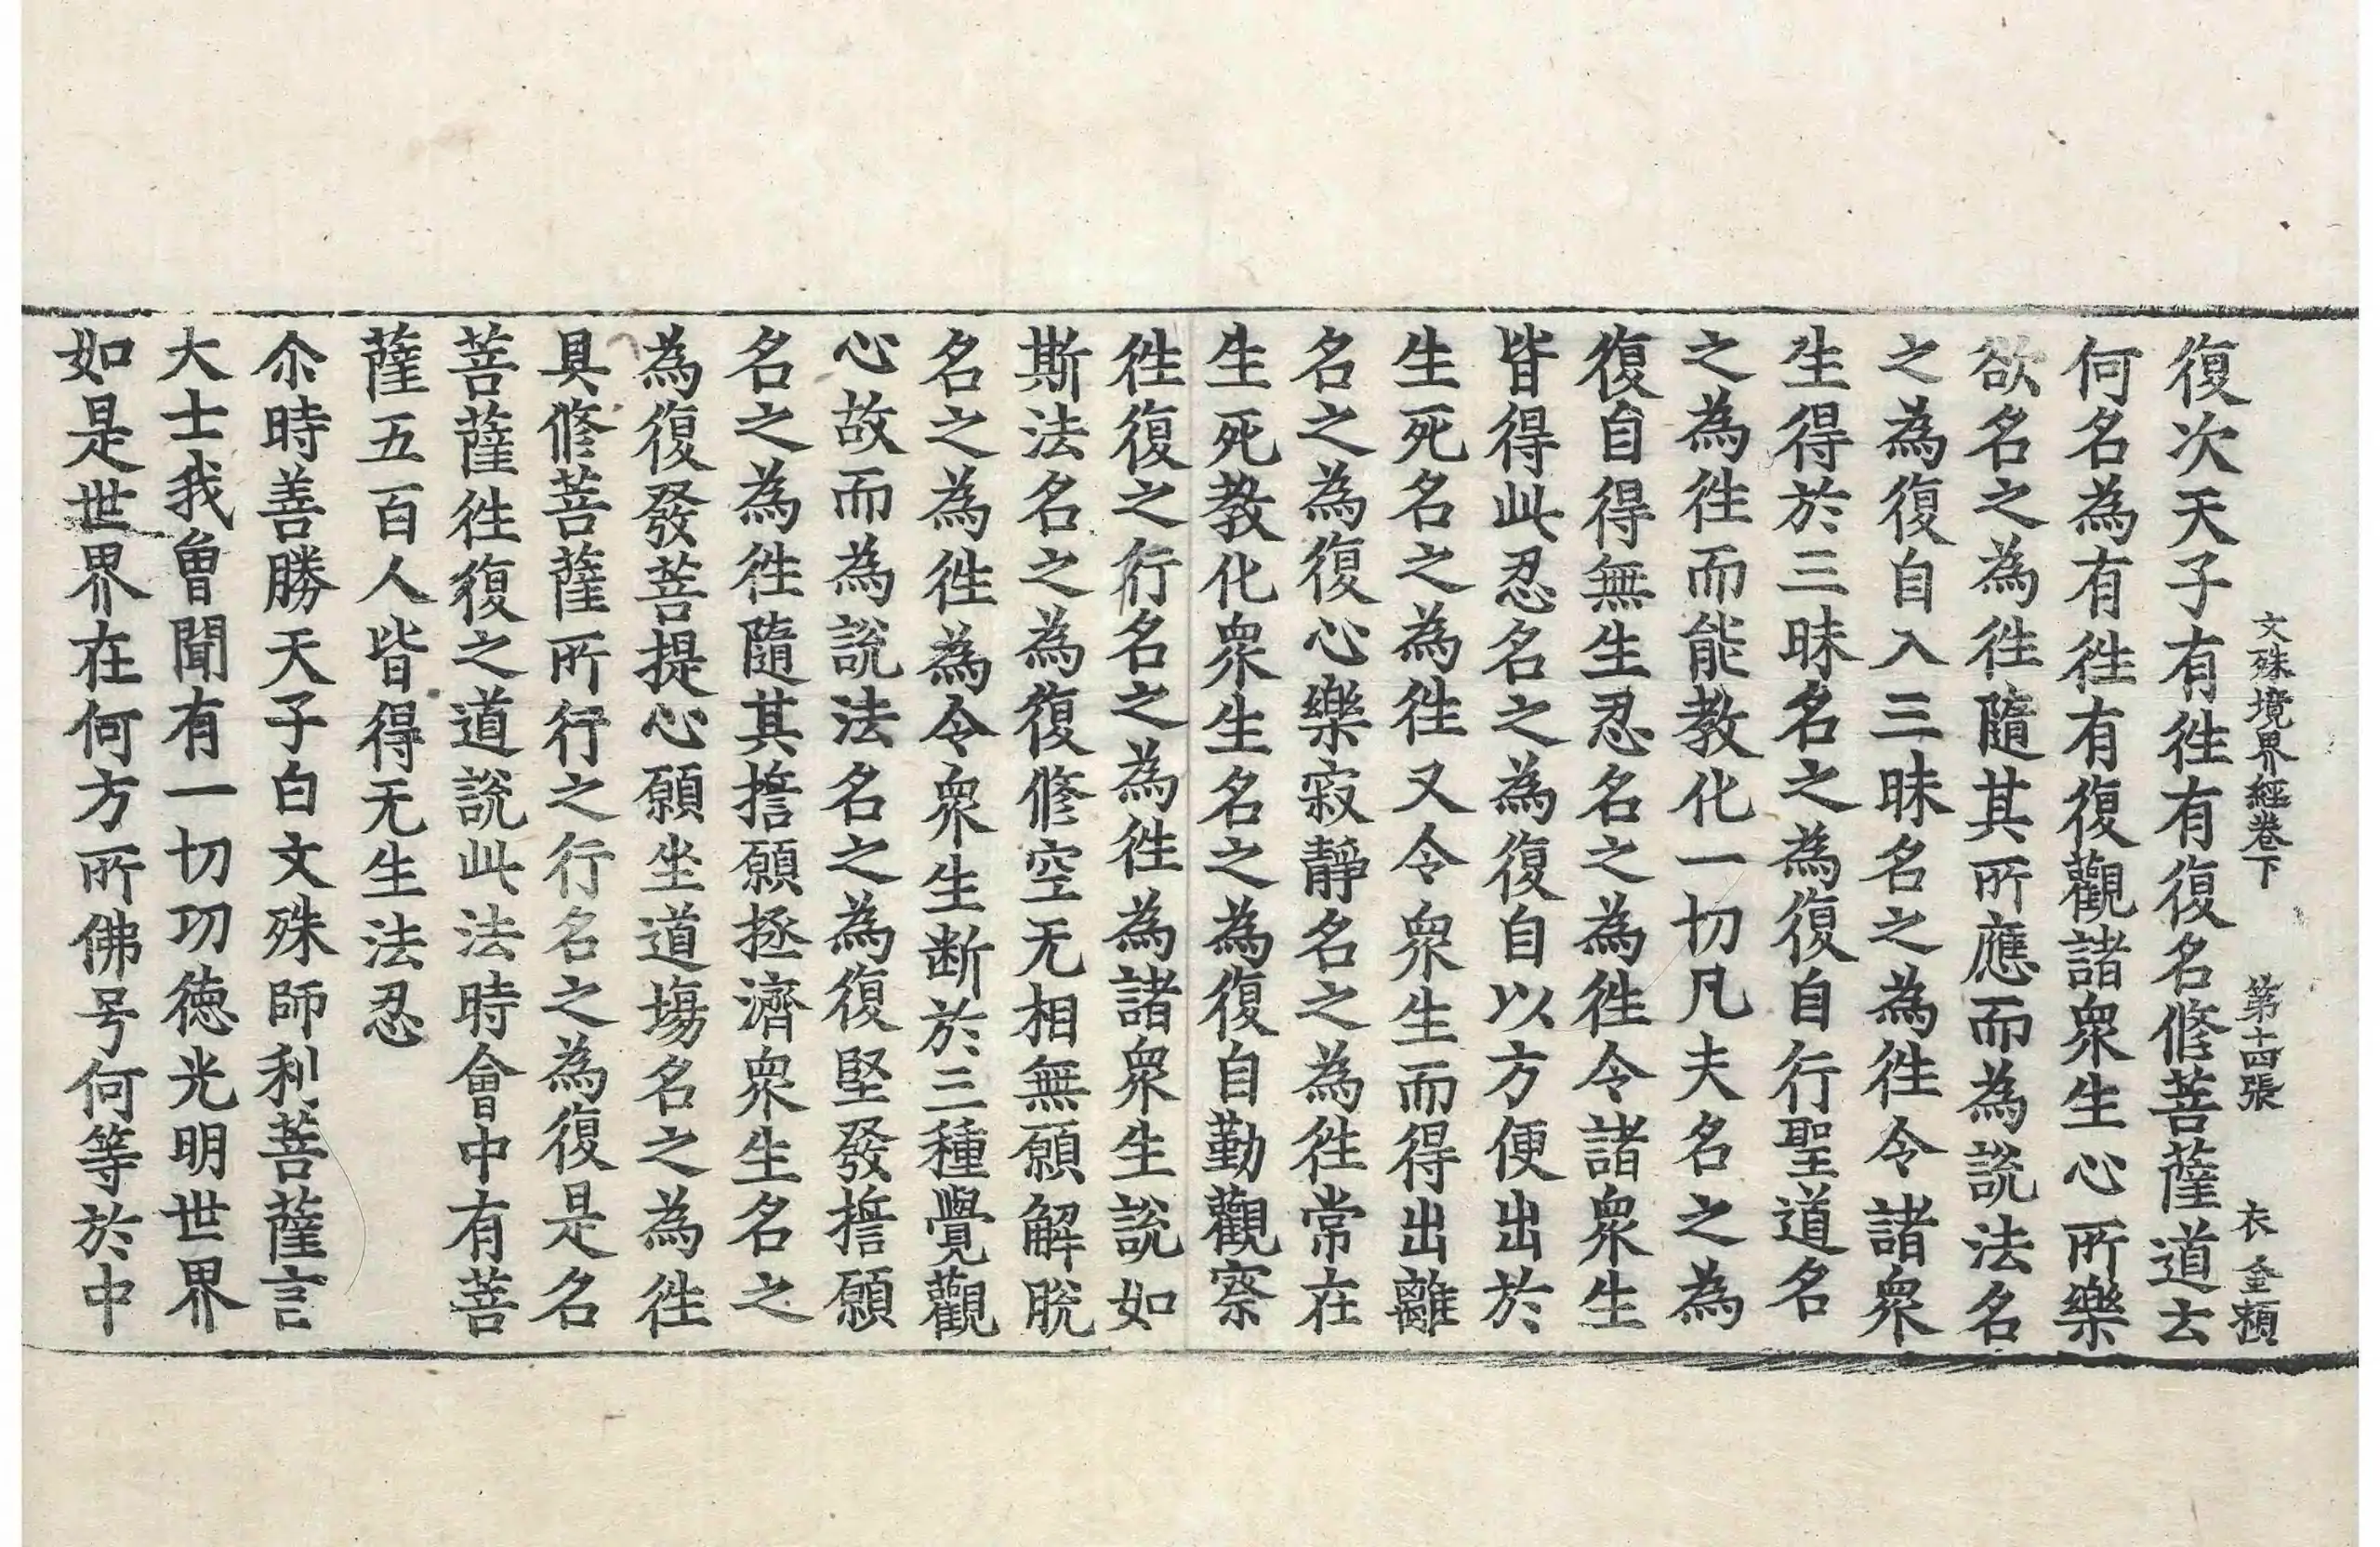 文殊境界經卷下　第十四張　衣　金頳
復次天子有徃有復名修菩薩道云
何名為有徃有復觀諸衆生心所樂
欲名之為徃隨其所應而為說法名
之為復自入三昧名之為徃令諸衆
生得於三昧名之為復自行聖道名
之為徃而能教化一切凡夫名之為
復自得無生忍名之為徃令諸衆生
皆得此忍名之為復自以方便出於
生死名之為徃又令衆生而得出離
名之為復心樂寂靜名之為徃常在
生死教化衆生名之為復自勤觀察
徃復之行名之為徃為諸衆生說如
斯法名之為復修空无相無願解脫
名之為徃為令衆生断於三種覺觀
心故而為說法名之為復堅發誓願
名之為徃隨其誓願拯濟衆生名之
為復發菩提心願坐道場名之為徃
具修菩薩所行之行名之為復是名
菩薩徃復之道說此法時會中有菩
薩五百人皆得无生法忍
尒時善勝天子白文殊師利菩薩言
大士我曾聞有一切功德光明世界
如是世界在何方所佛号何等於中